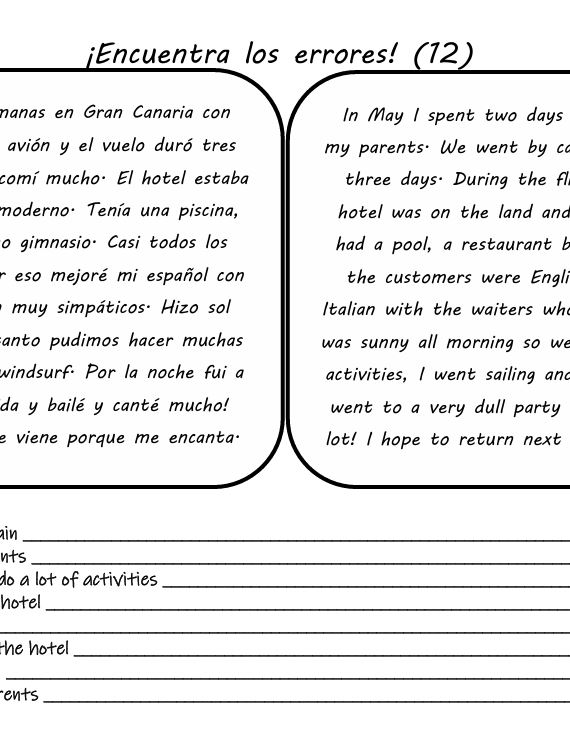 ¡Encuentra los errores! (12)
manas en Gran Canaria con
avión y el vuelo duró tres
comí mucho. El hotel estaba
moderno. Tenía una piscina,
o gimnasio. Casi todos los
r eso mejoré mi español con
muy simpáticos. Hizo sol
santo pudimos hacer muchas
windsurf. Por la noche fui a
da y bailé y canté mucho!
e viene porque me encanta.
In May I spent two days
my parents. We went by ca
three days. During the fli
hotel was on the land and
had a pool, a restaurant b
the customers were Engli
Italian with the waiters who
was sunny all morning so we
activities, I went sailing and
went to a very dull party
lot! I hope to return next
ain
nts
do a lot of activities
hotel
the hotel
rents